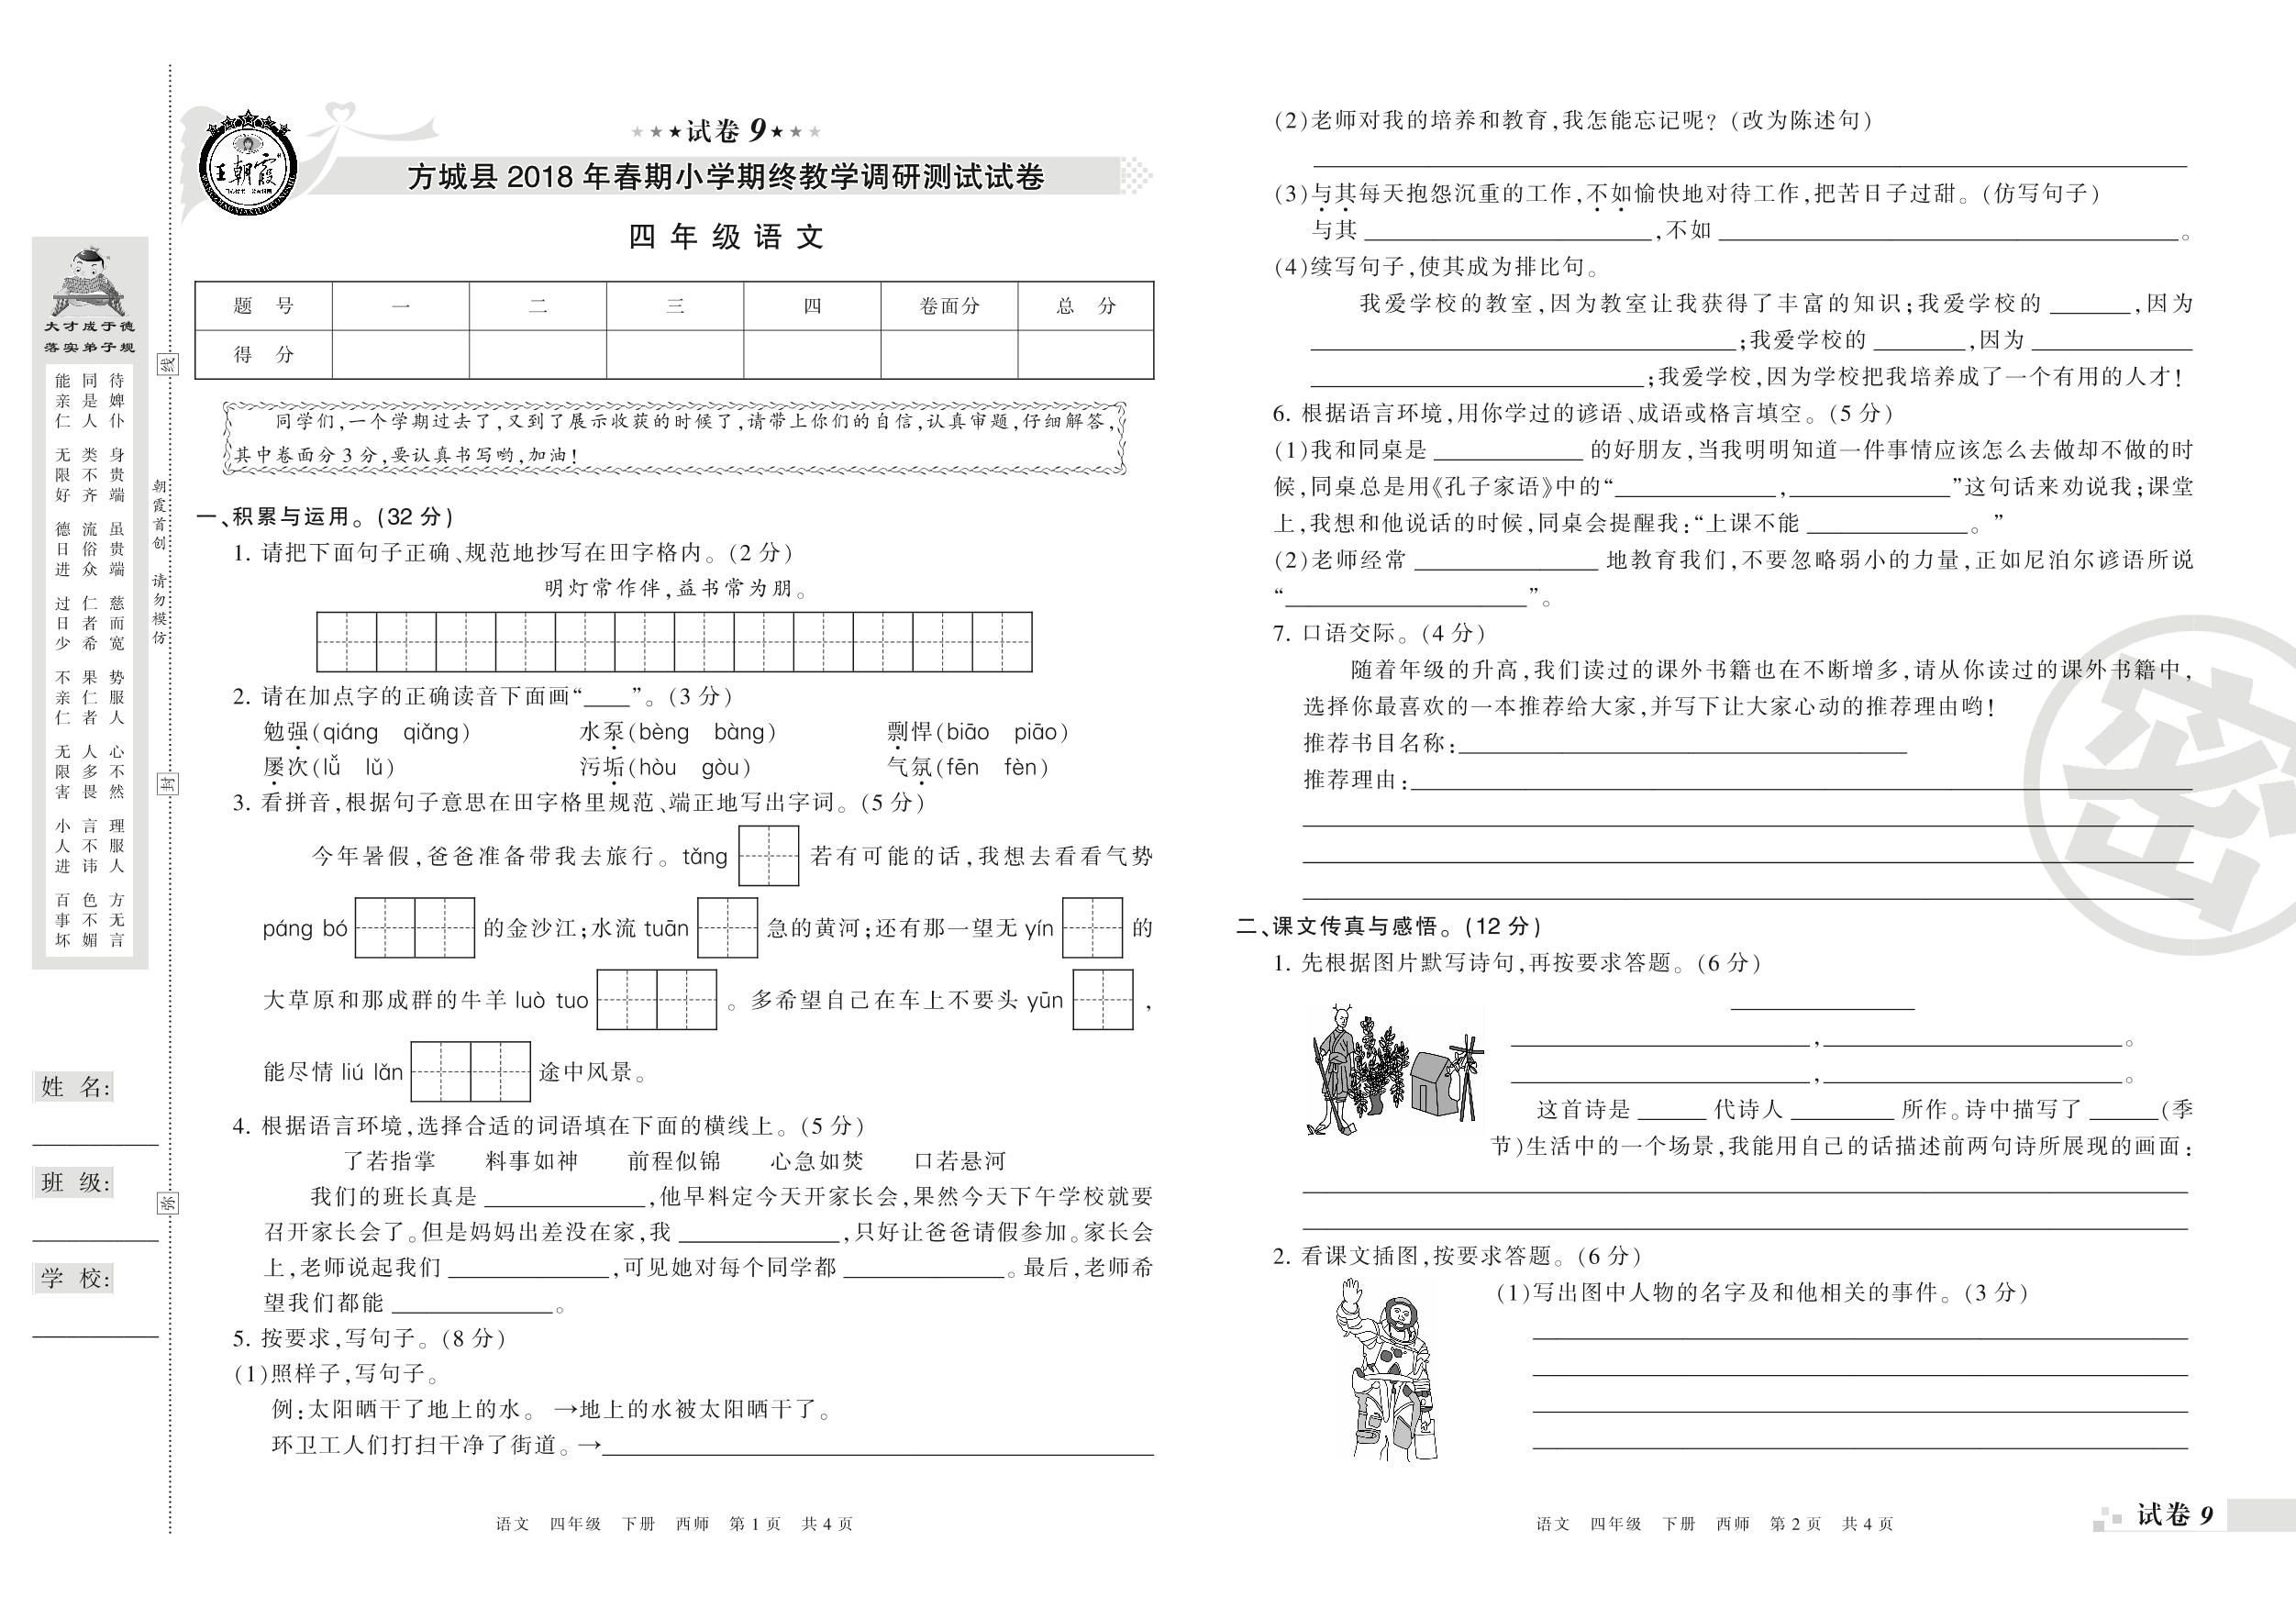 ★★★试卷9★★★
方城县2018年春期小学期终教学调研测试试卷
四年级语文
题 号 一 二 三 四 卷面分 总 分
得 分
同学们,一个学期过去了,又到了展示收获的时候了,请带上你们的自信,认真审题,仔细解答,
其中卷面分3分,要认真书写哟,加油!
一、积累与运用。(32分)
1. 请把下面句子正确、规范地抄写在田字格内。(2分)
明灯常作伴,益书常为朋。
2. 请在加点字的正确读音下面画“____”。(3分)
勉强(qiáng qiǎng) 水泵(bèng bàng) 剽悍(biāo piāo)
屡次(lǚ lǔ) 污垢(hòu gòu) 气氛(fēn fèn)
3. 看拼音,根据句子意思在田字格里规范、端正地写出字词。(5分)
今年暑假,爸爸准备带我去旅行。tǎng 若有可能的话,我想去看看气势
páng bó 的金沙江;水流 tuān 急的黄河;还有那一望无 yín 的
大草原和那成群的牛羊 luò tuo 。多希望自己在车上不要头 yūn ,
能尽情 liú lǎn 途中风景。
4. 根据语言环境,选择合适的词语填在下面的横线上。(5分)
了若指掌 料事如神 前程似锦 心急如焚 口若悬河
我们的班长真是____________,他早料定今天开家长会,果然今天下午学校就要
召开家长会了。但是妈妈出差没在家,我____________,只好让爸爸请假参加。家长会
上,老师说起我们____________,可见她对每个同学都____________。最后,老师希
望我们都能____________。
5. 按要求,写句子。(8分)
(1)照样子,写句子。
例:太阳晒干了地上的水。 →地上的水被太阳晒干了。
环卫工人们打扫干净了街道。→____________
语文 四年级 下册 西师 第1页 共4页
(2)老师对我的培养和教育,我怎能忘记呢?(改为陈述句)
(3)与其每天抱怨沉重的工作,不如愉快地对待工作,把苦日子过甜。(仿写句子)
与其____________,不如____________。
(4)续写句子,使其成为排比句。
我爱学校的教室,因为教室让我获得了丰富的知识;我爱学校的______,因为
____________;我爱学校的______,因为____________
____________;我爱学校,因为学校把我培养成了一个有用的人才!
6. 根据语言环境,用你学过的谚语、成语或格言填空。(5分)
(1)我和同桌是____________的好朋友,当我明明知道一件事情应该怎么去做却不做的时
候,同桌总是用《孔子家语》中的“____________,____________”这句话来劝说我;课堂
上,我想和他说话的时候,同桌会提醒我:“上课不能____________。”
(2)老师经常____________地教育我们,不要忽略弱小的力量,正如尼泊尔谚语所说
“____________”。
7. 口语交际。(4分)
随着年级的升高,我们读过的课外书籍也在不断增多,请从你读过的课外书籍中,
选择你最喜欢的一本推荐给大家,并写下让大家心动的推荐理由哟!
推荐书目名称:____________
推荐理由:____________
二、课文传真与感悟。(12分)
1. 先根据图片默写诗句,再按要求答题。(6分)
____________,____________。
____________,____________。
这首诗是______代诗人______所作。诗中描写了______(季
节)生活中的一个场景,我能用自己的话描述前两句诗所展现的画面:
2. 看课文插图,按要求答题。(6分)
(1)写出图中人物的名字及和他相关的事件。(3分)
语文 四年级 下册 西师 第2页 共4页
试卷9
密
王朝霞
大才成于德
落实弟子规
待婢仆 身贵端 虽贵端 慈而宽 势服人 心不然 理服人 方无言
同是人 类不齐 流俗众 仁者希 果仁者 人多畏 言不讳 色不媚
能亲仁 无限好 德日进 过日少 不亲仁 无限害 小人进 百事坏
朝霞首创 请勿模仿
线
封
弥
姓 名:
班 级:
学 校: